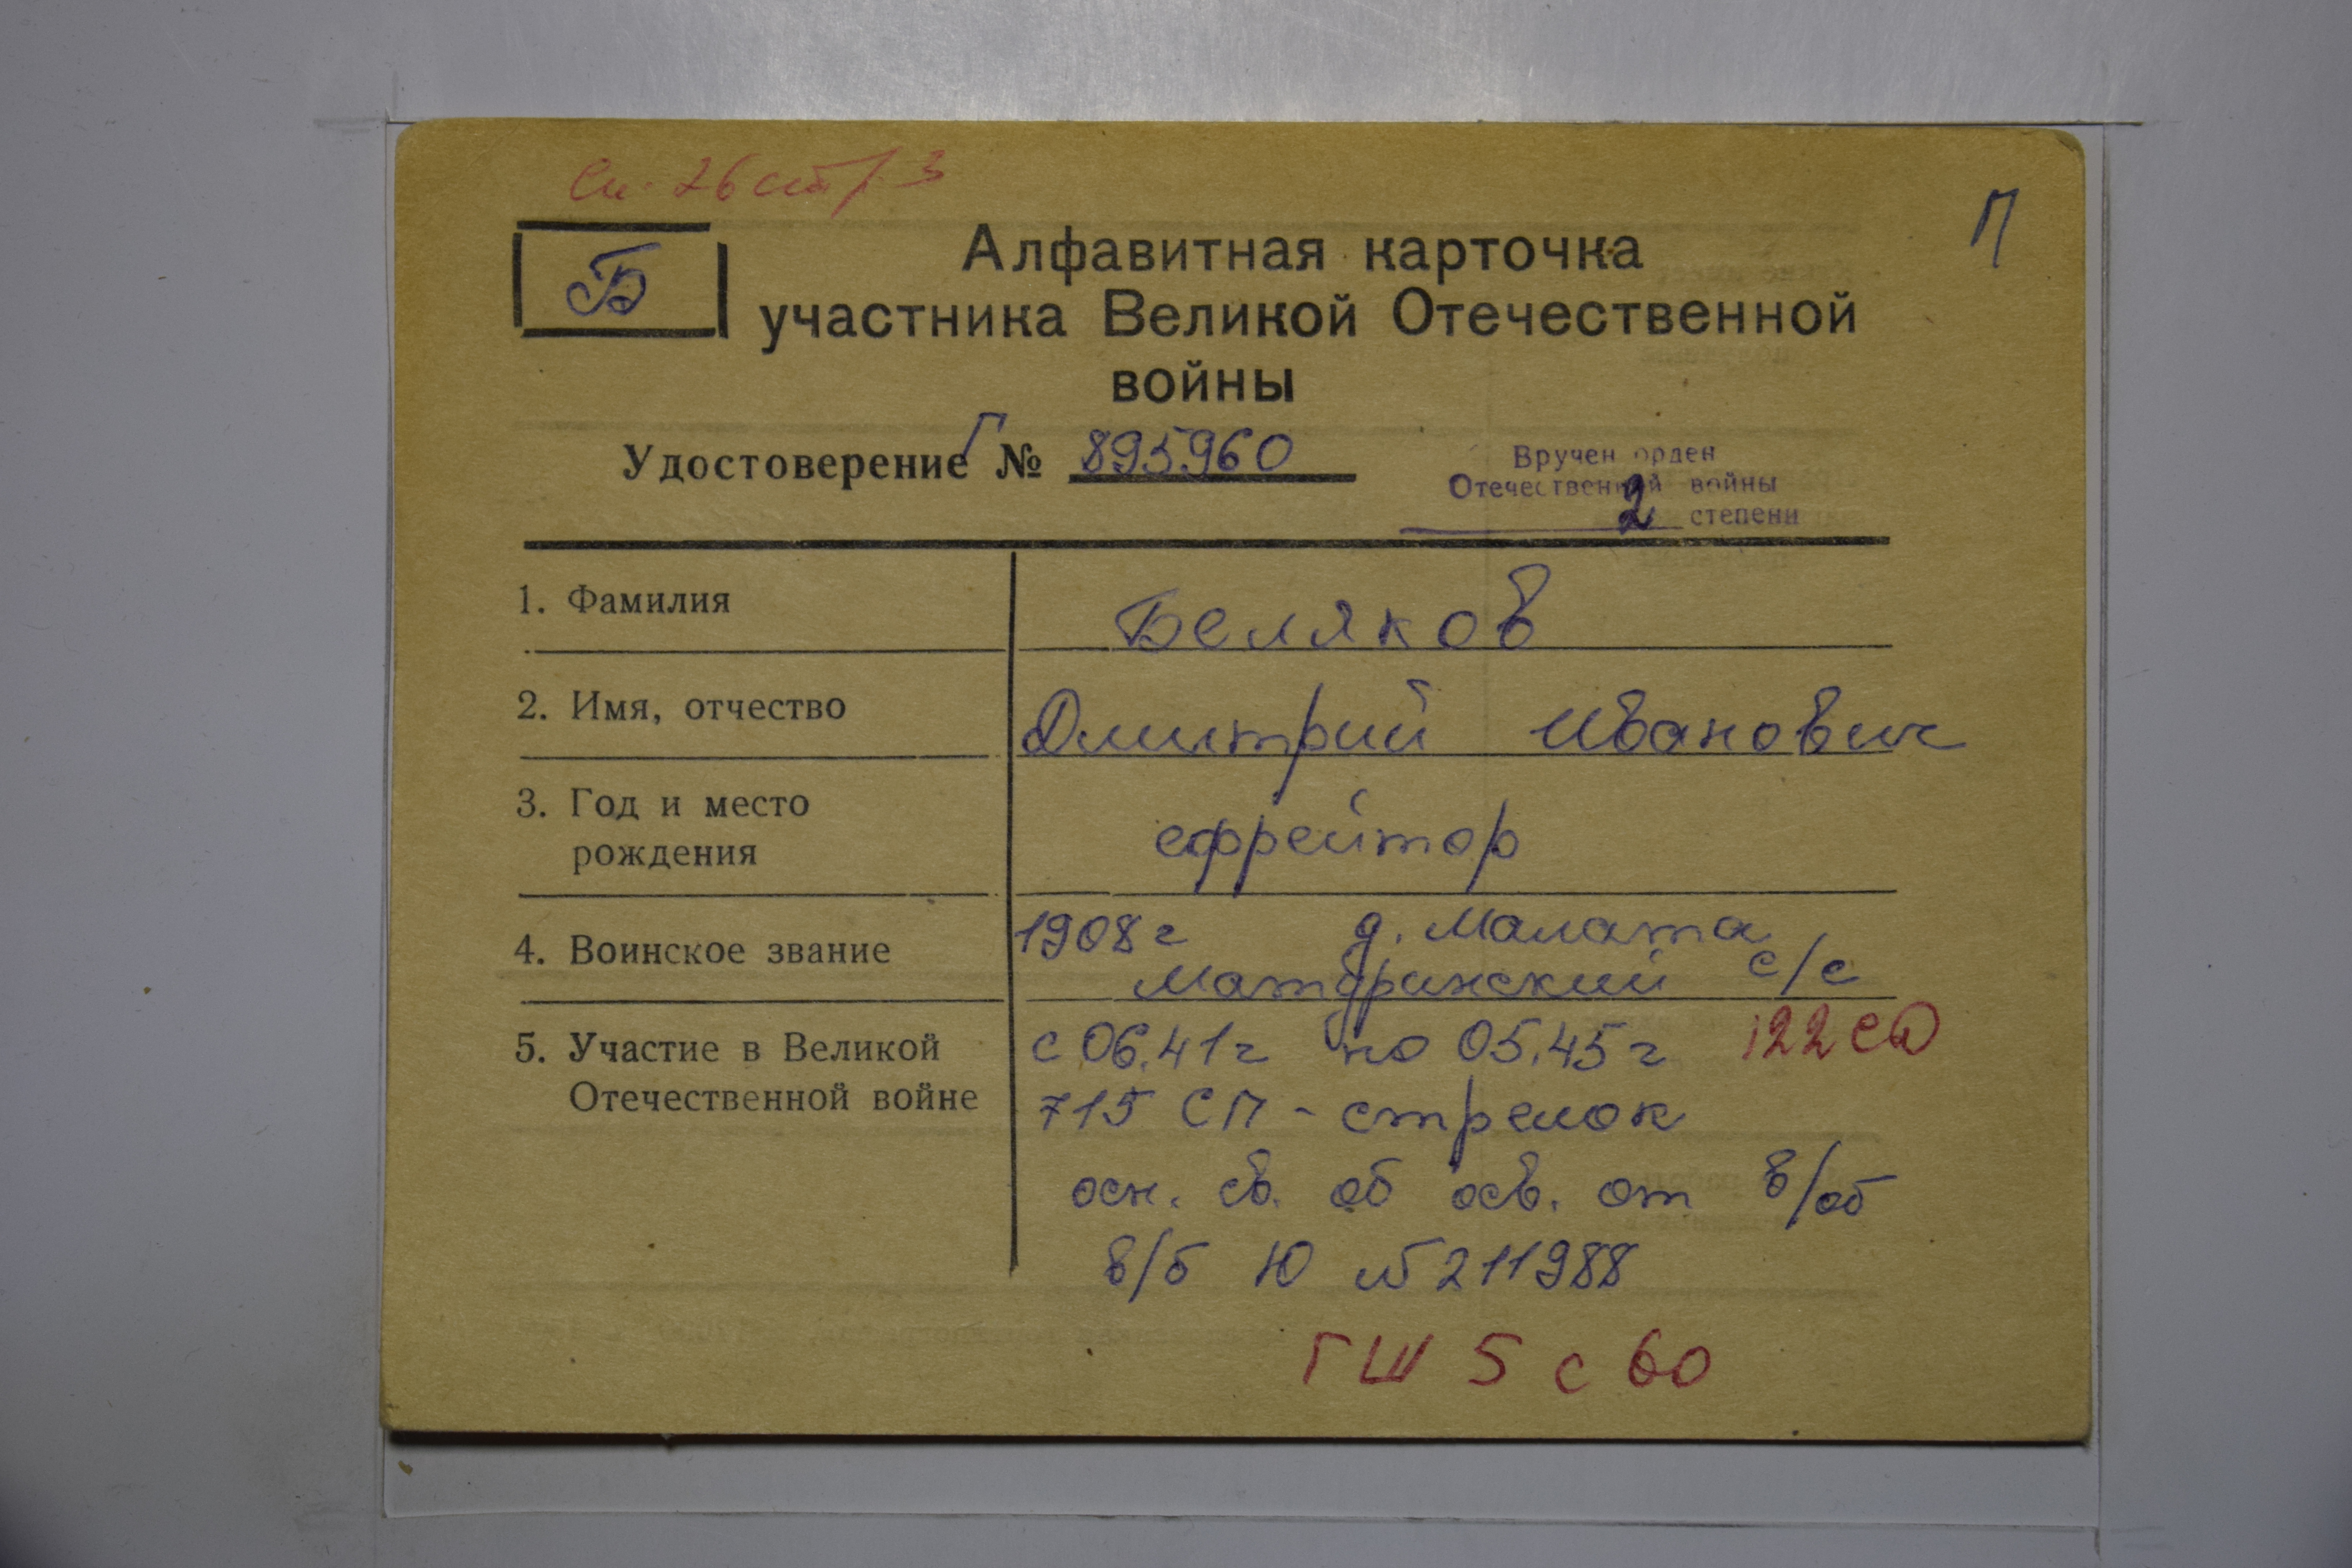 Сп. 26 стр 3
П
Б
Алфавитная карточка
участника Великой Отечественной
войны
Удостоверение Г № 895960
Вручен орден
Отечественной войны
2 степени
1. Фамилия
Беляков
2. Имя, отчество
Дмитрий Иванович
3. Год и место
рождения
ефрейтор
4. Воинское звание
1908 г д. Малата
с/с
5. Участие в Великой
Отечественной войне
с 06.41 г по 05.45 г 122 СД
715 СП - стрелок
осн. св. об осв. от в/об
в/б Ю № 211988
ГШ 5 с 60